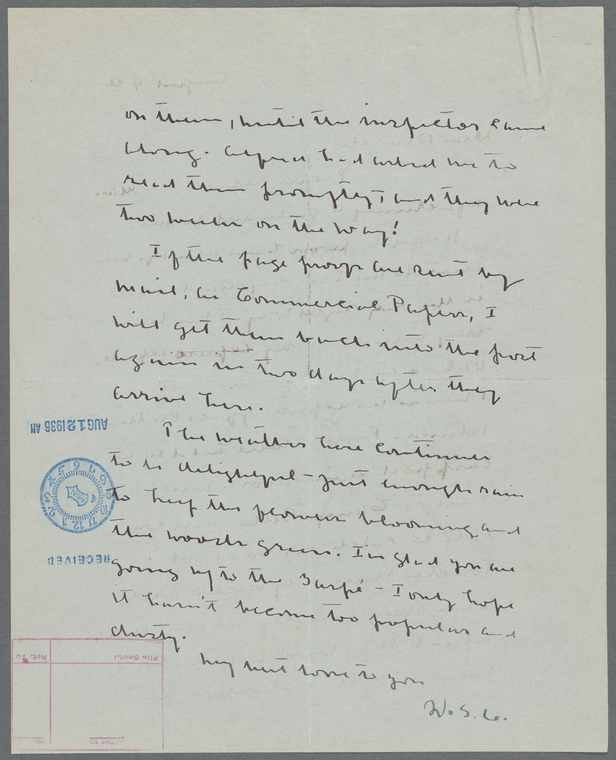 on them, until the inspector came
along. Alfred had asked me to
read them promptly, and they were
two weeks on the way!
If the page proofs are sent by
mail, as Commercial Papers, I
will get them back into the post
again in two days after they
arrive here.
The weather here continues
to be delightful - just enough rain
to keep the flowers blooming and
the woods green. I'm glad you are
going up to the Gaspé - I only hope
it hasn't become too popular and
dusty.
My best love to you
W. S. C.
AUG 12 1936 AM
RECEIVED
File Sect.
Ret. To